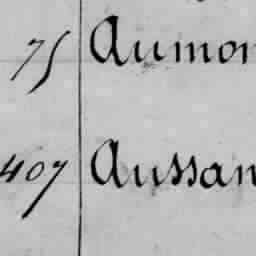 75 Aumon
407 Aussan